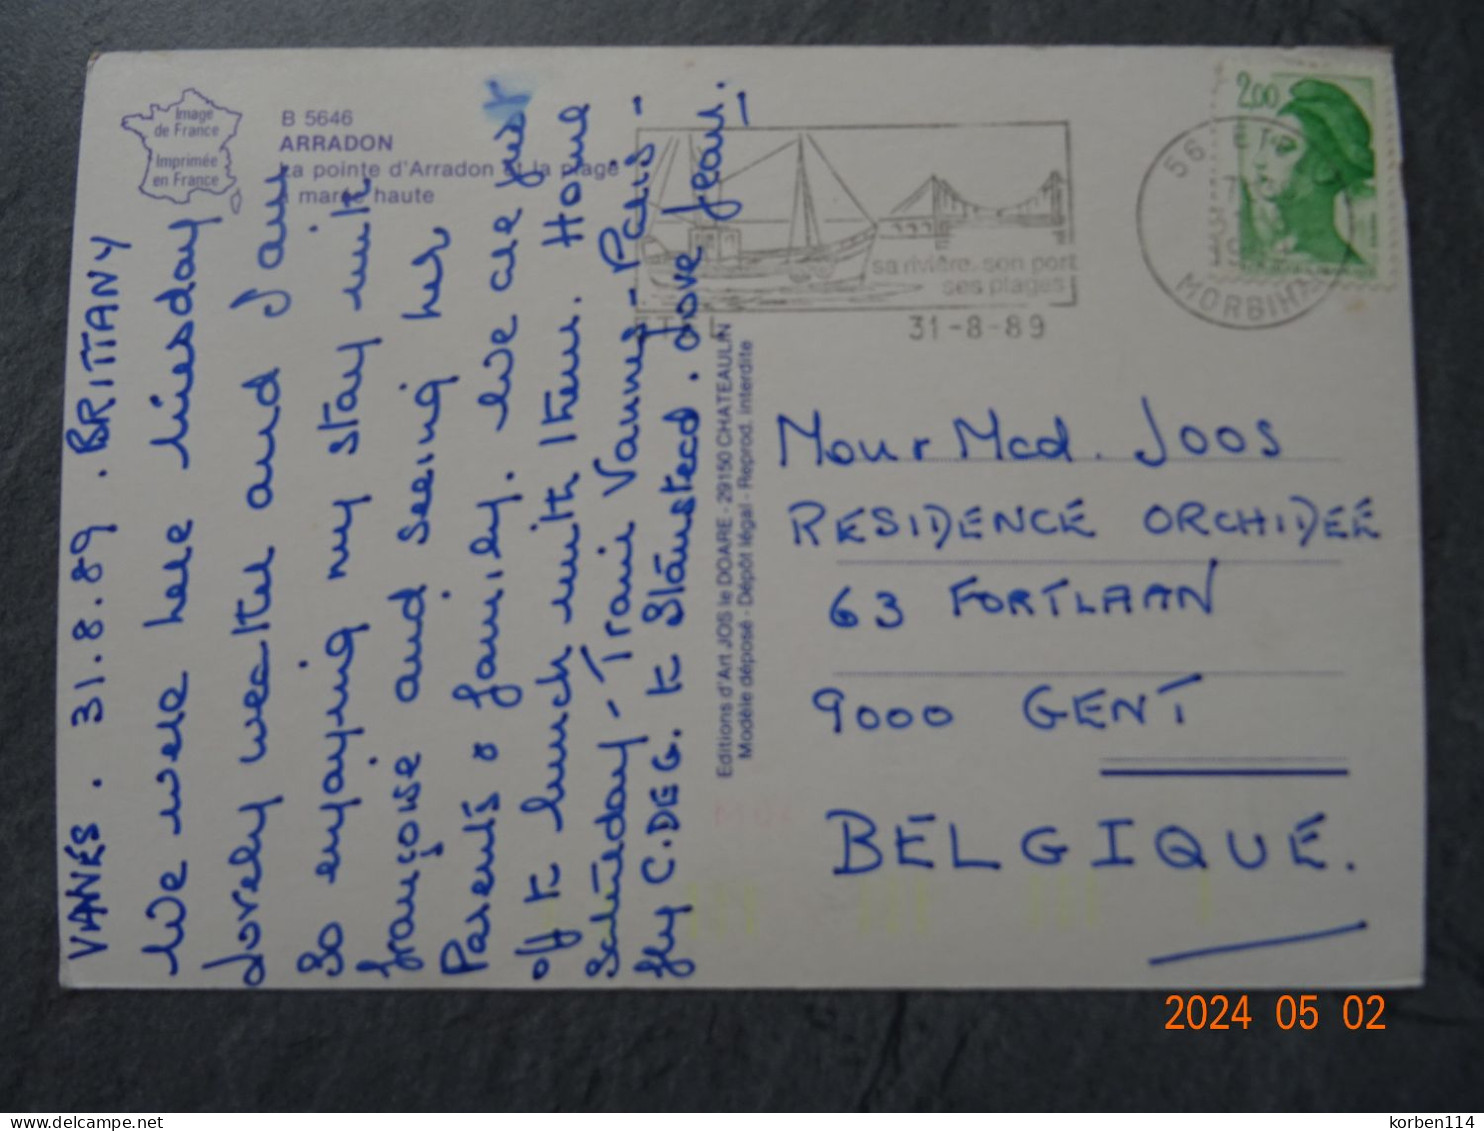 Image
de France
Imprimée
en France
B 5646
ARRADON
La pointe d'Arradon et la plage
à marée haute
VANES. 31.8.89. BRITTANY
We were here Tuesday
Lovely weather and I am
So enjoying my stay with
Françoise and seeing her
Parents & family. We are just
off to lunch with them. Home
Saturday - Train Vannes - Paris -
fly C.DEG. to Stansted. Love Jean.
sa rivière, son port
ses plages
ETEL
31-8-89
56 ETEL
MORBIHAN
2,00
Editions d'Art JOS le DOARE - 29150 CHATEAULIN
Modèle déposé - Dépôt légal - Reprod. interdite
Mour Mad. JOOS
RESIDENCE ORCHIDEE
63 FORTLAAN
9000 GENT
BELGIQUE.
2024 05 02
korben114